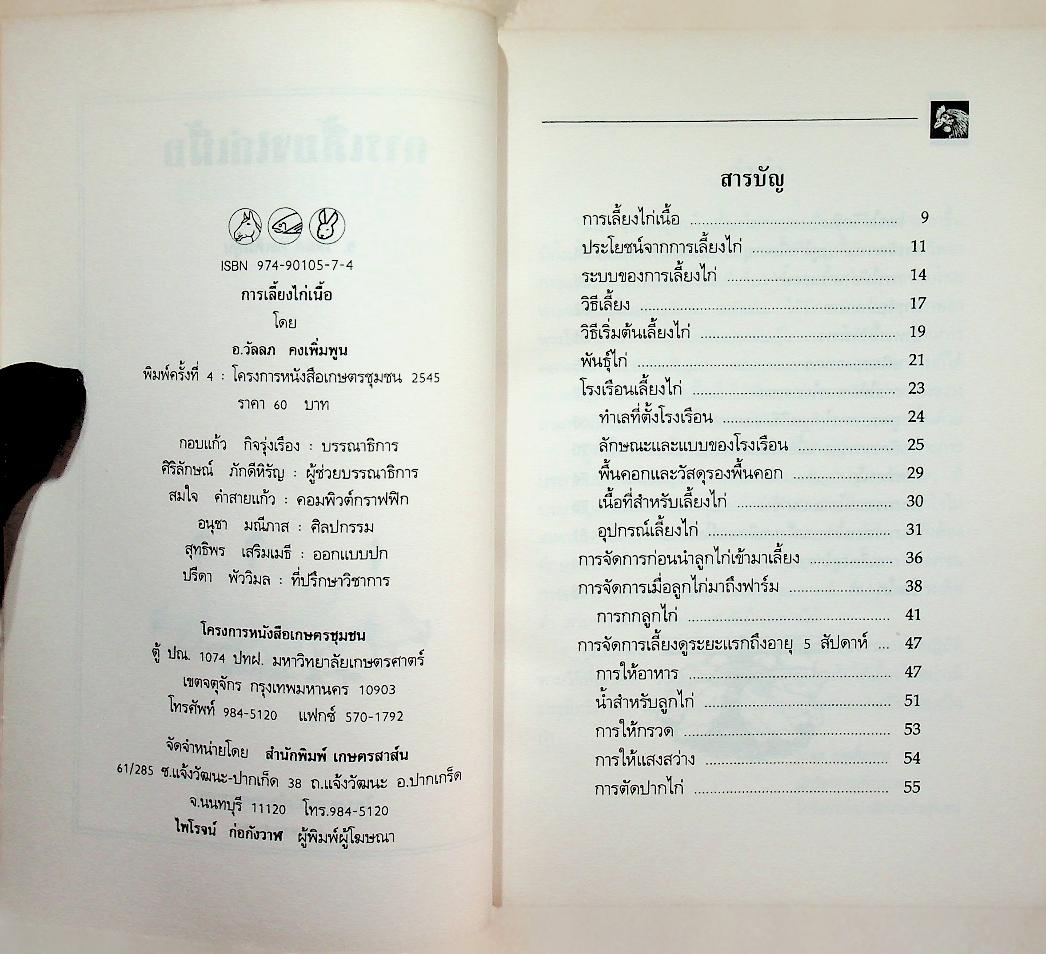 ISBN 974-90105-7-4
การเลี้ยงไก่เนื้อ
โดย
อ.วัลลภ คงเพิ่มพูน
พิมพ์ครั้งที่ 4 : โครงการหนังสือเกษตรชุมชน 2545
ราคา 60 บาท
กอบแก้ว กิจรุ่งเรือง : บรรณาธิการ
ศิริลักษณ์ ภักดีหิรัญ : ผู้ช่วยบรรณาธิการ
สมใจ คำสายแก้ว : คอมพิวต์กราฟฟิก
อนุชา มณีภาส : ศิลปกรรม
สุทธิพร เสริมเมธี : ออกแบบปก
ปรีดา พัววิมล : ที่ปรึกษาวิชาการ
โครงการหนังสือเกษตรชุมชน
ตู้ ปณ. 1074 ปทฝ. มหาวิทยาลัยเกษตรศาตร์
เขตจตุจักร กรุงเทพมหานคร 10903
โทรศัพท์ 984-5120 แฟกซ์ 570-1792
จัดจำหน่ายโดย สำนักพิมพ์ เกษตรสาส์น
61/285 ซ.แจ้งวัฒนะ-ปากเก็ด 38 ถ.แจ้งวัฒนะ อ.ปากเกร็ด
จ.นนทบุรี 11120 โทร.984-5120
ไพโรจน์ ก่อกังวาฬ ผู้พิมพ์ผู้โฆษณา
สารบัญ
การเลี้ยงไก่เนื้อ ........ 9
ประโยชน์จากการเลี้ยงไก่ ........ 11
ระบบของการเลี้ยงไก่ ........ 14
วิธีเลี้ยง ........ 17
วิธีเริ่มต้นเลี้ยงไก่ ........ 19
พันธุ์ไก่ ........ 21
โรงเรือนเลี้ยงไก่ ........ 23
ทำเลที่ตั้งโรงเรือน ........ 24
ลักษณะและแบบของโรงเรือน ........ 25
พื้นคอกและวัสดุรองพื้นคอก ........ 29
เนื้อที่สำหรับเลี้ยงไก่ ........ 30
อุปกรณ์เลี้ยงไก่ ........ 31
การจัดการก่อนนำลูกไก่เข้ามาเลี้ยง ........ 36
การจัดการเมื่อลูกไก่มาถึงฟาร์ม ........ 38
การกกลูกไก่ ........ 41
การจัดการเลี้ยงดูระยะแรกถึงอายุ 5 สัปดาห์ ... 47
การให้อาหาร ........ 47
น้ำสำหรับลูกไก่ ........ 51
การให้กรวด ........ 53
การให้แสงสว่าง ........ 54
การตัดปากไก่ ........ 55